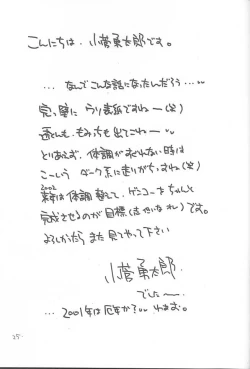 こんにちは。小菅勇太郎です。
…なんでこんな話になったんだろう…。
完っ璧に ウソ表紙ですねー(笑)
もみちも出てこねー
とりあえず、体調がすぐれない時は
こーいうダーク系に走りがちですね(笑)
2002
来年は体調整えて、ゲンコーをちゃんと
完成させるのが目標(志ひくいなオレ)です。
よろしかったら また 見てやって下さい
小菅勇太郎
でしたー。
…2001年は厄年か?… わぁむ。
25